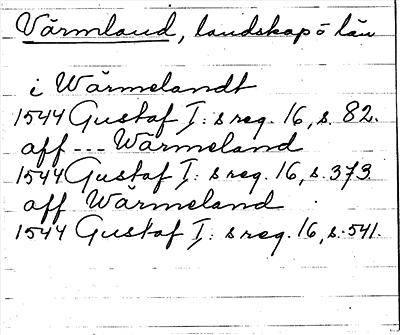 Värmland, landskap o län
i Wärmelandt
1544 Gustaf I: s reg. 16, s. 82.
aff --- Wärmeland
1544 Gustaf I: s reg. 16, s. 373
aff Wärmeland
1544 Gustaf I: s reg. 16, s. 541.